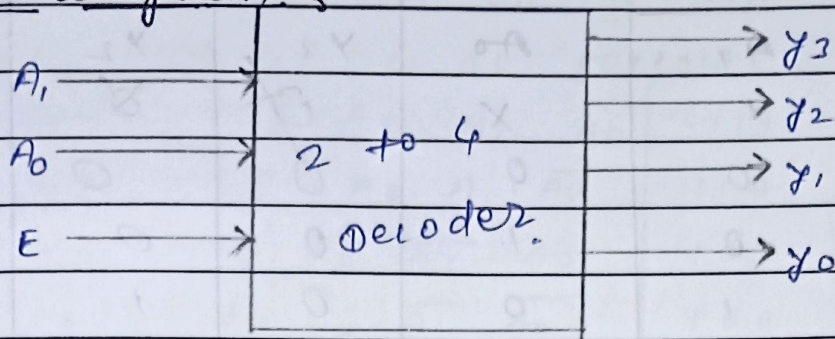 A₁
A₀
E
2 to 4
Decoder.
y₃
y₂
y₁
y₀